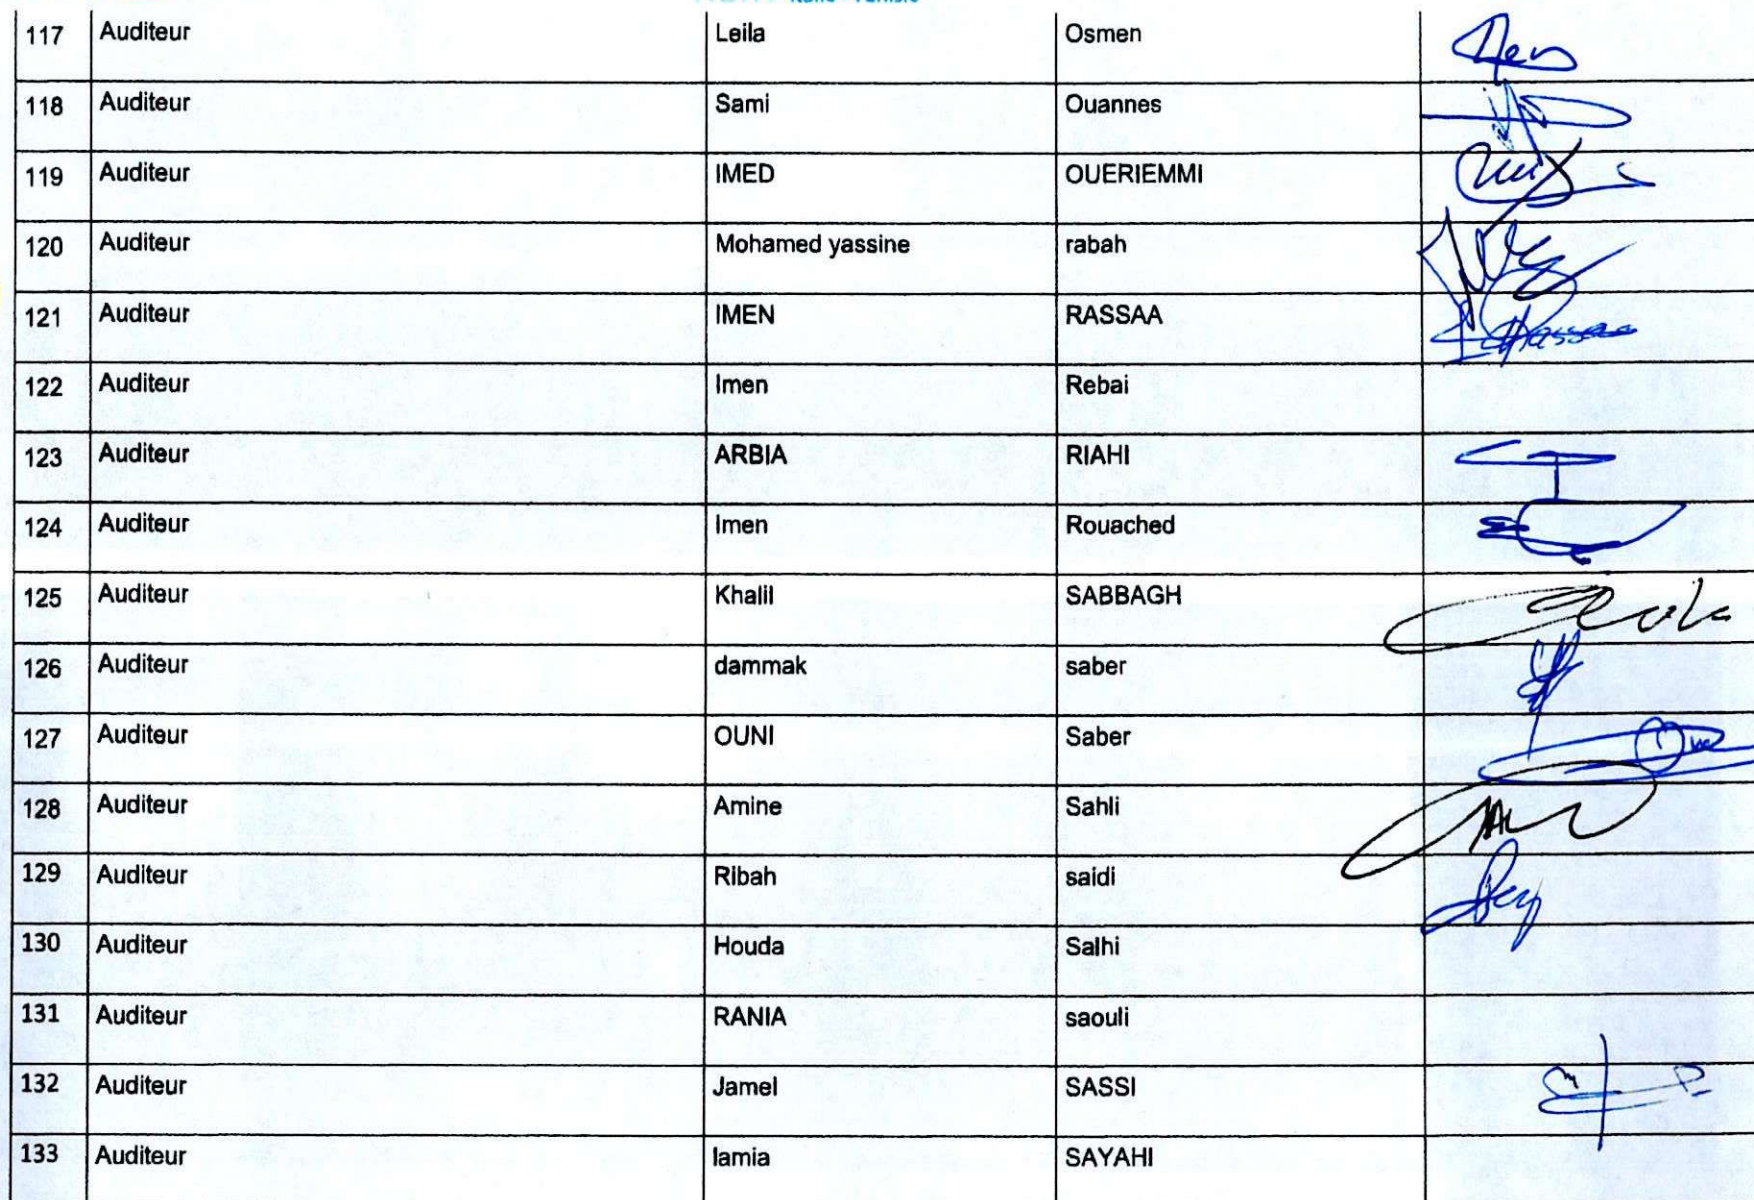 Italie Tunisie
117 Auditeur Leila Osmen
118 Auditeur Sami Ouannes
119 Auditeur IMED OUERIEMMI
120 Auditeur Mohamed yassine rabah
121 Auditeur IMEN RASSAA
122 Auditeur Imen Rebai
123 Auditeur ARBIA RIAHI
124 Auditeur Imen Rouached
125 Auditeur Khalil SABBAGH
126 Auditeur dammak saber
127 Auditeur OUNI Saber
128 Auditeur Amine Sahli
129 Auditeur Ribah saidi
130 Auditeur Houda Salhi
131 Auditeur RANIA saouli
132 Auditeur Jamel SASSI
133 Auditeur lamia SAYAHI